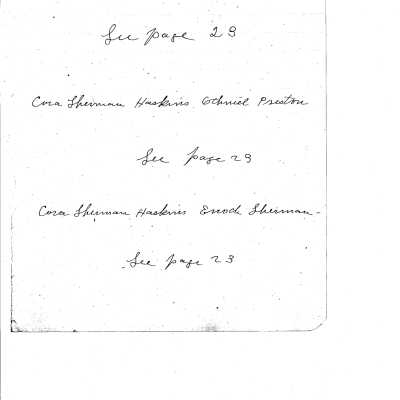 See page 23
Cora Sherman Haskins Othniel Preston
See page 23
Cora Sherman Haskins Enoch Sherman-
See page 23